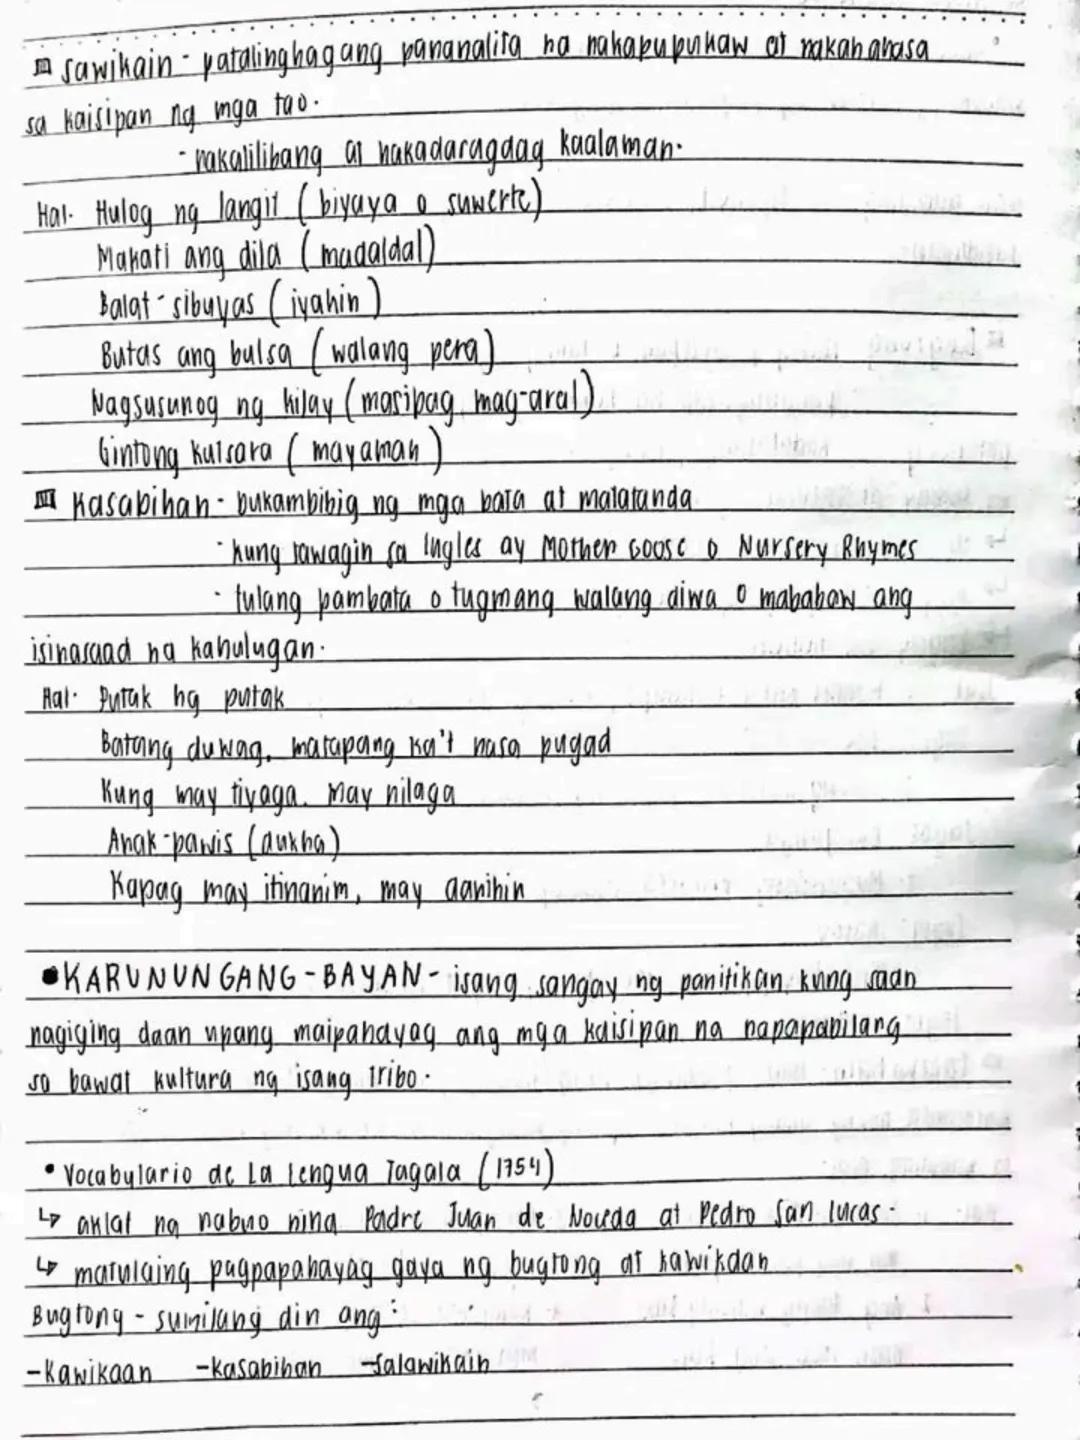 III sawikain - patalinghagang pananalita na nakapupukaw at nakahahasa
sa kaisipan ng mga tao.
- nakalilibang at nakadaragdag kaalaman.
Hal. Hulog ng langit (biyaya o suwerte)
Makati ang dila (madaldal)
Balat-sibuyas (iyahin)
Butas ang bulsa (walang pera)
Nagsusunog ng kilay (masipag mag-aral)
Gintong kutsara (mayaman)
III Kasabihan - bukambibig ng mga bata at matatanda
- kung tawagin sa Ingles ay Mother Goose o Nursery Rhymes
- tulang pambata o tugmang walang diwa o mababaw ang
isinasaad na kahulugan.
Hal. Putak ng putak
Batang duwag, matapang ka't nasa pugad
Kung may tiyaga. May nilaga
Anak-pawis (dukha)
Kapag may itinanim, may aanihin
• KARUNUNGANG-BAYAN - isang sangay ng panitikan kung saan
nagiging daan upang maipahayag ang mga kaisipan na napapabilang
sa bawat kultura ng isang tribo.
• Vocabulario de La Lengua Tagala (1754)
↳ aklat na nabuo nina Padre Juan de Noceda at Pedro San Lucas.
↳ matulaing pagpapahayag gaya ng bugtong at kawikaan
Bugtong - sumilang din ang:
-Kawikaan -Kasabihan -Salawikain